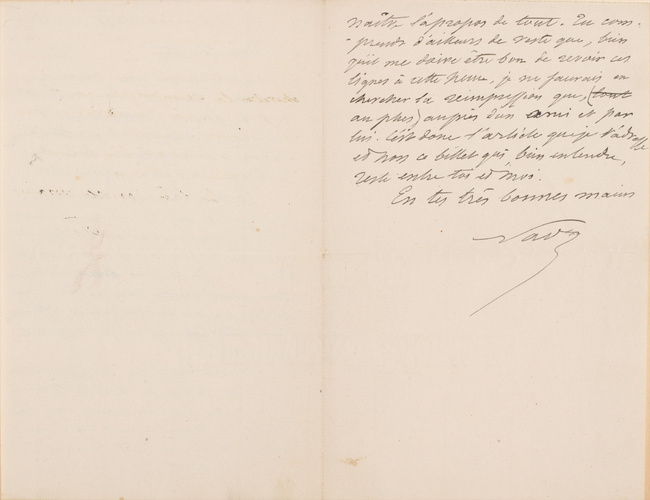 naître l'à propos de tout. Tu com-
-prends d'ailleurs de reste que, bien
qu'il me doive être bon de revoir ces
lignes à cette heure, je ne saurais en
chercher la réimpression que, (tout
au plus) auprès d'un ami et par
lui. C'est donc l'article que je t'adresse
et non ce billet qui, bien entendu,
reste entre toi et moi.
En tes très bonnes mains